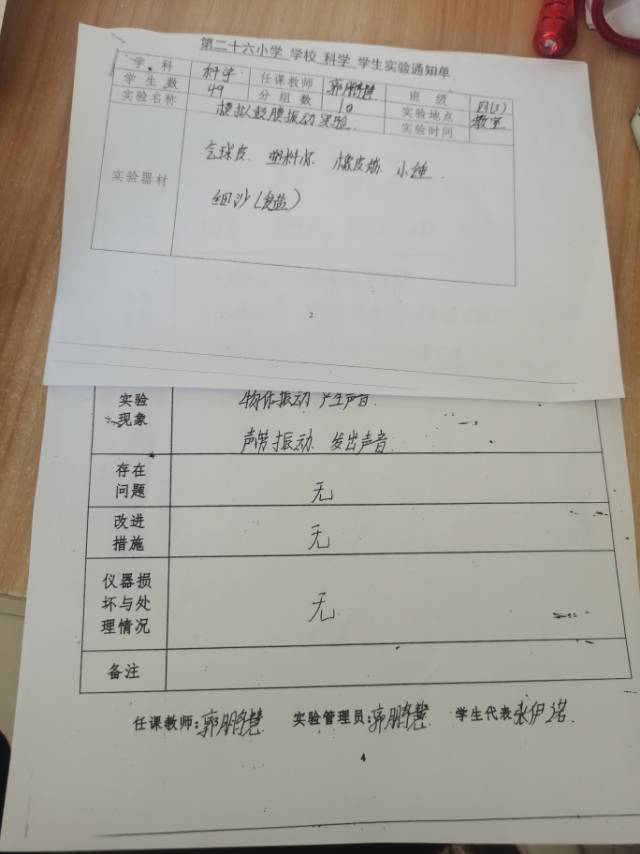 第二十六小学 学校 科学 学生实验通知单
学科 科学 任课教师 郭鹏慧 班级 四(1)
学生数 49 分组数 10 实验地点 教室
实验名称 模拟鼓膜振动实验 实验时间
实验器材 气球皮 塑料杯 橡皮筋 小锤
细沙(食盐)
2
实验现象 物体振动 产生声音.
声带振动 发出声音.
存在问题 无
改进措施 无
仪器损坏与处理情况 无
备注
任课教师:郭鹏慧 实验管理员:郭鹏慧 学生代表 张伊诺
4